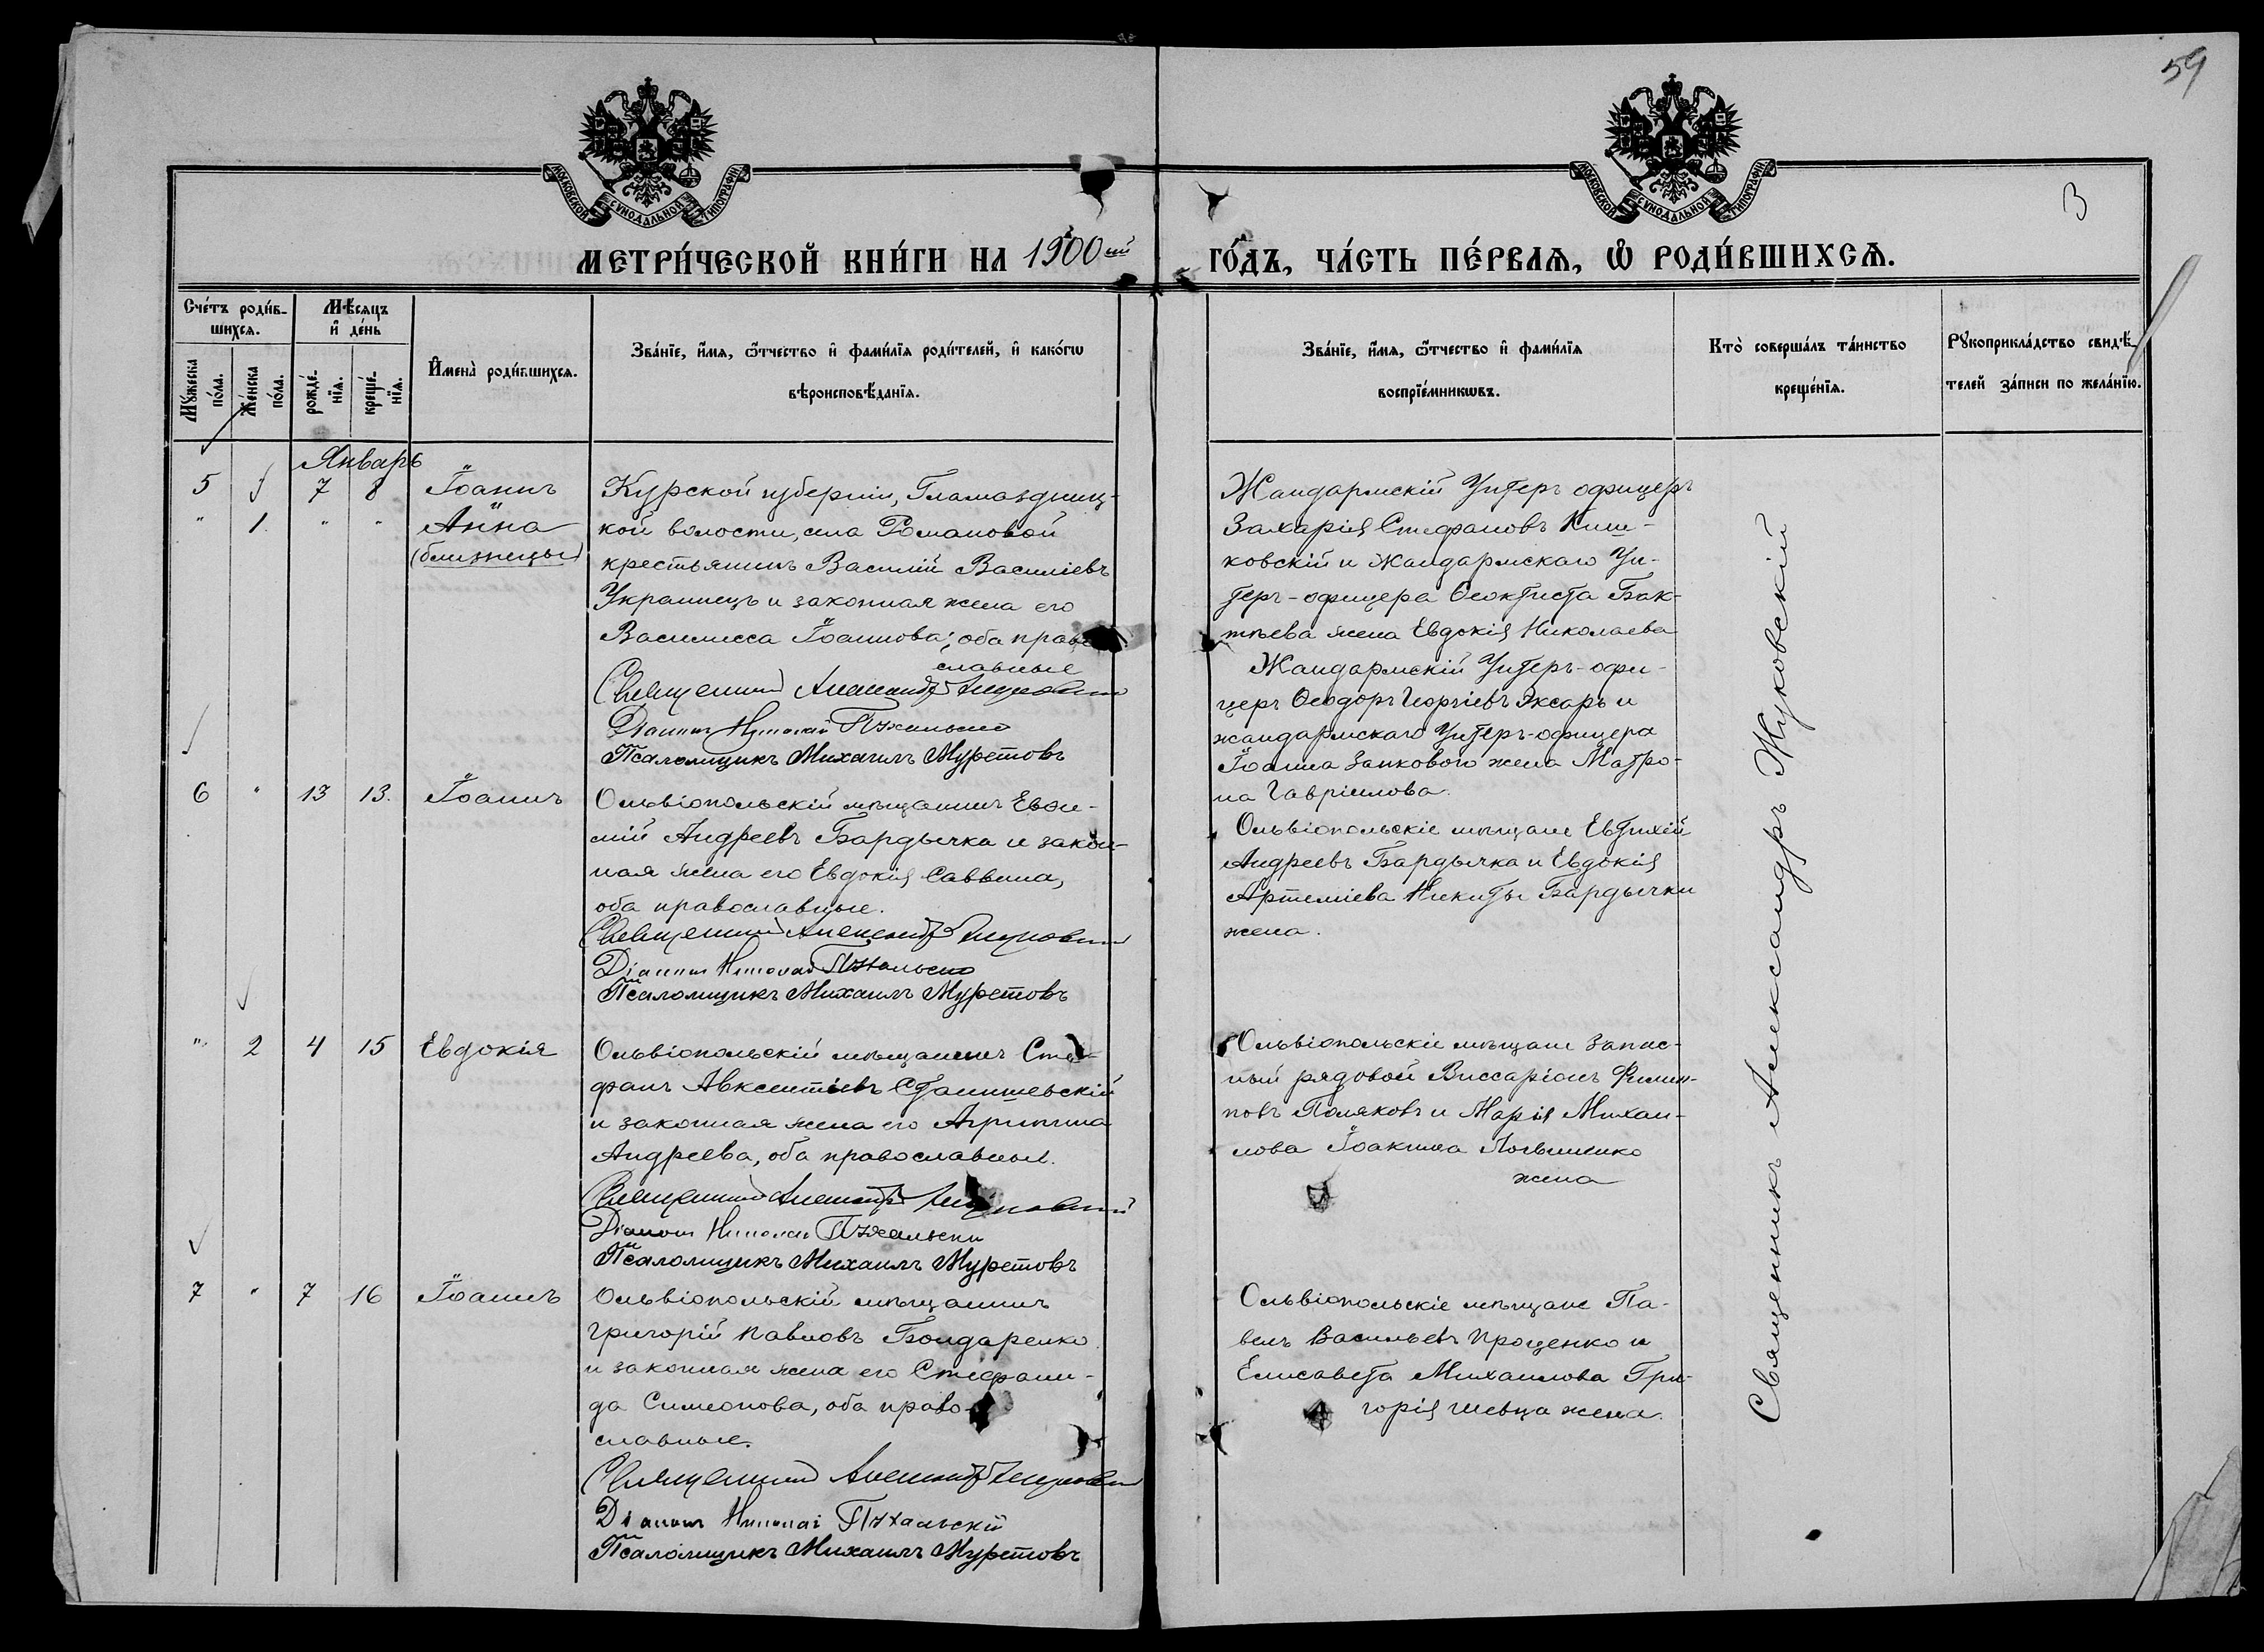 59
3
МОСКОВСКОЙ СУНОДАЛЬНОЙ ТИПОГРАФІИ
МОСКОВСКОЙ СУНОДАЛЬНОЙ ТИПОГРАФІИ
МЕТРИ́ЧЕСКОЙ КНИ́ГИ НА 1900ый ГО́ДЪ, ЧА́СТЬ ПЕ́РВАѦ, Ѡ РОДИ́ВШИХСѦ.
Сче́тъ роди́в-
шихсѧ.
Мѣ́сѧцъ
и҆ де́нь
Мꙋ́жеска
по́ла.
Же́нска
по́ла.
рожде́-
нїѧ.
креще́-
нїѧ.
И҆мена̀ роди́вшихсѧ.
Зва́нїе, и҆́мѧ, ѻ҆́тчество и҆ фами́лїѧ роди́телей, и҆ како́гѡ
вѣроисповѣ́данїѧ.
Зва́нїе, и҆́мѧ, ѻ҆́тчество и҆ фами́лїѧ
воспрїе́мникѡвъ.
Кто̀ соверша́лъ та́инство
креще́нїѧ.
Рꙋкоприкла́дство свидѣ́-
телей за́писи по жела́нїю.
Январь
5 7 8 Іоаннъ
" 1. " " Анна
(близнецы)
Курской губерніи, Гламаздинц-
кой волости, села Романовой
крестьянинъ Василій Василіевъ
Украинецъ и законная жена его
Василисса Іоаннова; оба право
славные
Священникъ Александръ Жуковскій
Діаконъ Николай Пухальскій
Псаломщикъ Михаилъ Муретовъ
Жандармскій Унтеръ офицеръ
Захарія Стефановъ Киш-
ковскій и Жандармскаго Ун-
теръ-офицера Ѳеоктиста Бак-
тѣева жена Евдокія Николаева
Жандармскій Унтеръ-офи-
церъ Ѳеодоръ Георгіевъ Эксаръ и
жандармскаго Унтеръ-офицера
Іоанна Заикового жена Матро-
на Гавріилова.
6 " 13 13. Іоаннъ
Ольвіопольскій мѣщанинъ Евѳи-
мій Андреевъ Бардычка и закон-
ная жена его Евдокія Саввина,
оба православные.
Священникъ Александръ Жуковскій
Діаконъ Николай Пухальскій
Псаломщикъ Михаилъ Муретовъ
Ольвіопольскіе мѣщане Евтихій
Андреевъ Бардычка и Евдокія
Артеміева Никиты Бардычки
жена.
" 2 4 15 Евдокія
Ольвіопольскій мѣщанинъ Сте-
фанъ Авксентіевъ Станишевскій
и законная жена его Агрипина
Андреева, оба православные.
Священникъ Александръ Жуковскій
Діаконъ Николай Пухальскій
Псаломщикъ Михаилъ Муретовъ
Ольвіопольскіе мѣщане запас-
ный рядовой Виссаріонъ Филип-
повъ Поляковъ и Марія Михаи-
лова Іоакима Логвиненко
жена
7 " 7 16 Іоаннъ
Ольвіопольскій мѣщанинъ
Григорій Павловъ Бондаренко
и законная жена его Стефани-
да Симеонова, оба право-
славные.
Священникъ Александръ Жуковскій
Діаконъ Николай Пухальскій
Псаломщикъ Михаилъ Муретовъ
Ольвіопольскіе мѣщане Па-
велъ Васильевъ Проценко и
Елисавета Михаилова Гри-
горія Шевца жена.
Священникъ Александръ Жуковскій